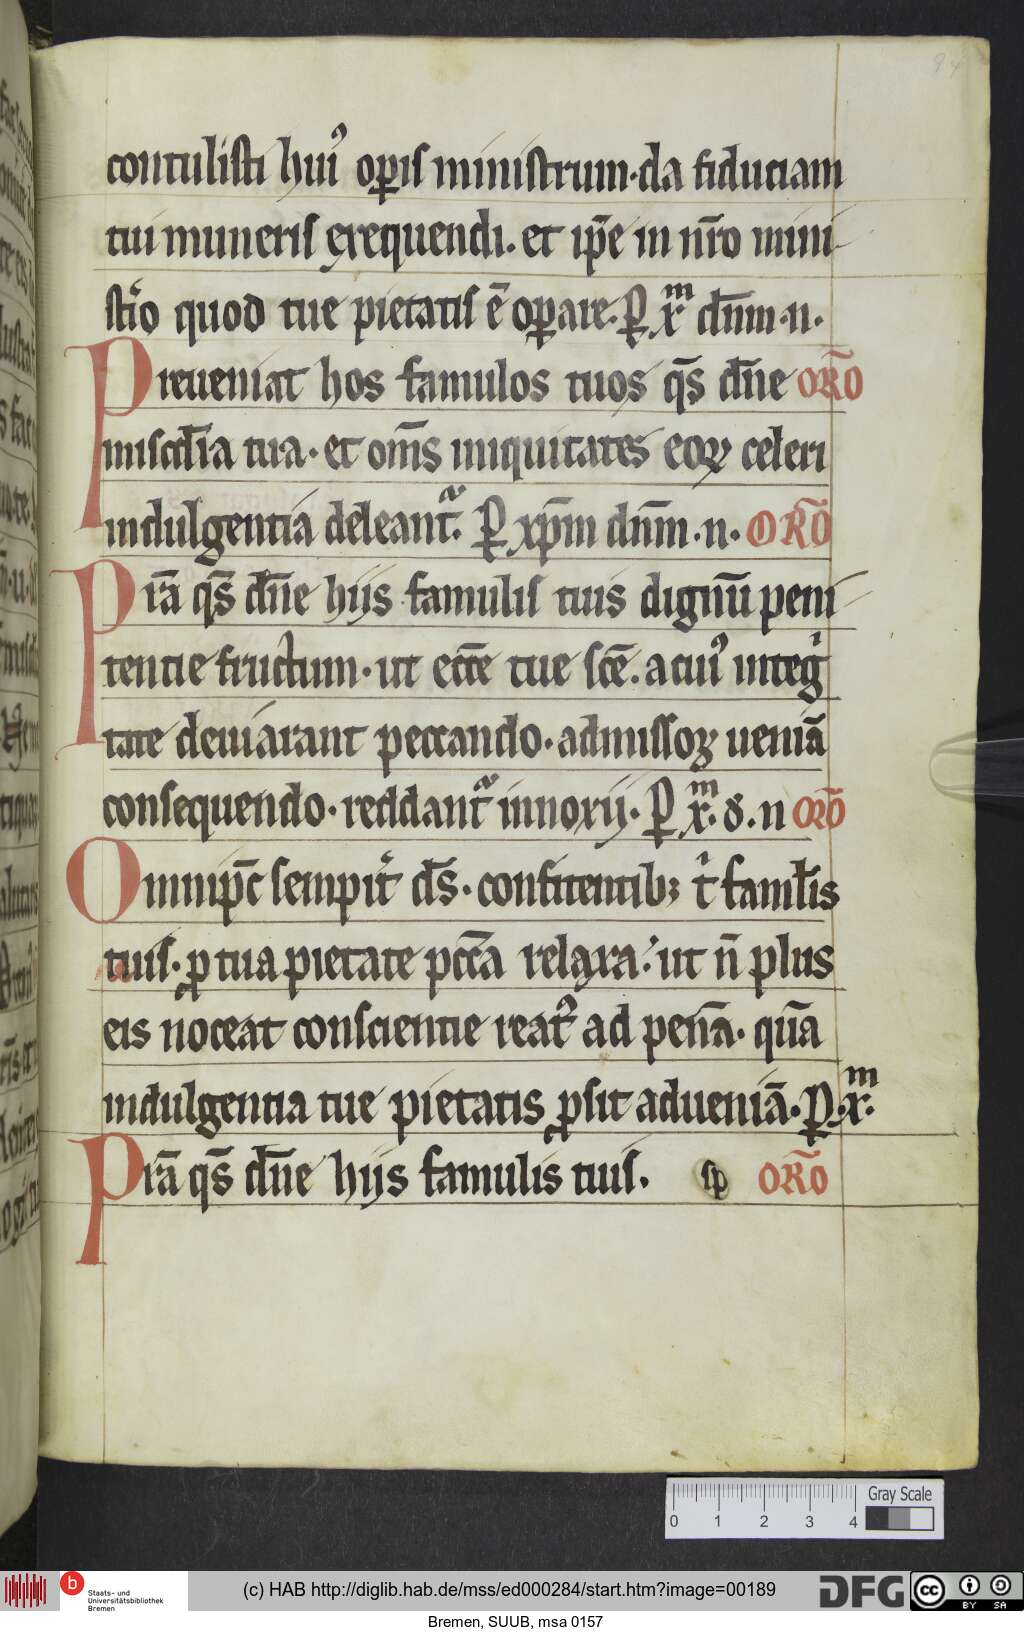 94
contulisti huiꝰ opis ministrum·da fiduciam
tui muneris exequendi. et ip̄e in nr̄o mini-
stͥo quod tue pietatis ē opare. P xͫ dn̄m·n·
Preueniat hos famulos tuos qs̄ dn̄e ORO
mīscdīa tua· et om̄s iniquitates eoꝝ celeri
indulgentia deleant᷑. P xp̄m dn̄m·n· ORO
Prā qs̄ dn̄e hijs famulis tuis dignū peni-
tentie fructum· ut ecc̄e tue sc̄e. a cuiꝰ integͥ
tate deuiarant peccando· admissoꝝ ueniā
consequendo· reddant᷑ innoxij. P xͫ. d. n ORO
Omnip̄c sempit̄ ds̄. confitentibꝫ tͥ famľis
tuis· ꝓ tua pietate pcc̄a relaxa. ut n̄ plus
eis noceat conscientie reatꝰ ad penā· quā
indulgentia tue pietatis ꝓsit ad ueniā. P. xͫ.
Prā qs̄ dn̄e hijs famulis tuis. ORO
0 1 2 3 4
Gray Scale
b
Staats- und
Universitätsbibliothek
Bremen
(c) HAB http://diglib.hab.de/mss/ed000284/start.htm?image=00189
DFG
cc BY SA
Bremen, SUUB, msa 0157